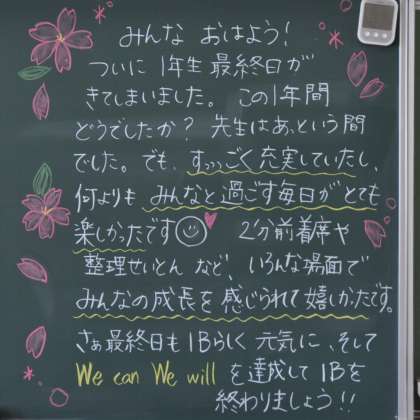 みんな おはよう!
ついに 1年生 最終日が
きてしまいました。 この1年間
どうでしたか? 先生はあっという間
でした。でも、すっっごく充実していたし、
何よりも みんなと過ごす毎日がとても
楽しかったです 2分前着席や
整理せいとん など、いろんな場面で
みんなの成長を感じられて嬉しかったです。
さぁ最終日も 1Bらしく 元気に、そして
We can We will を達成して 1Bを
終わりましょう!!